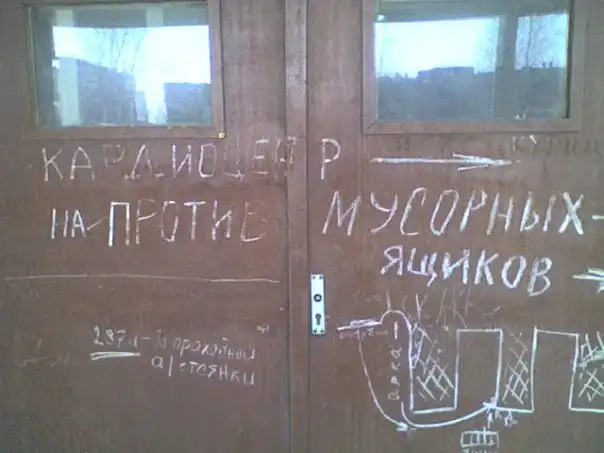 КАРДИОЦЕНТР
НА ПРОТИВ МУСОРНЫХ-
ЯЩИКОВ
287 - За проходной
а/стоянки
Арка